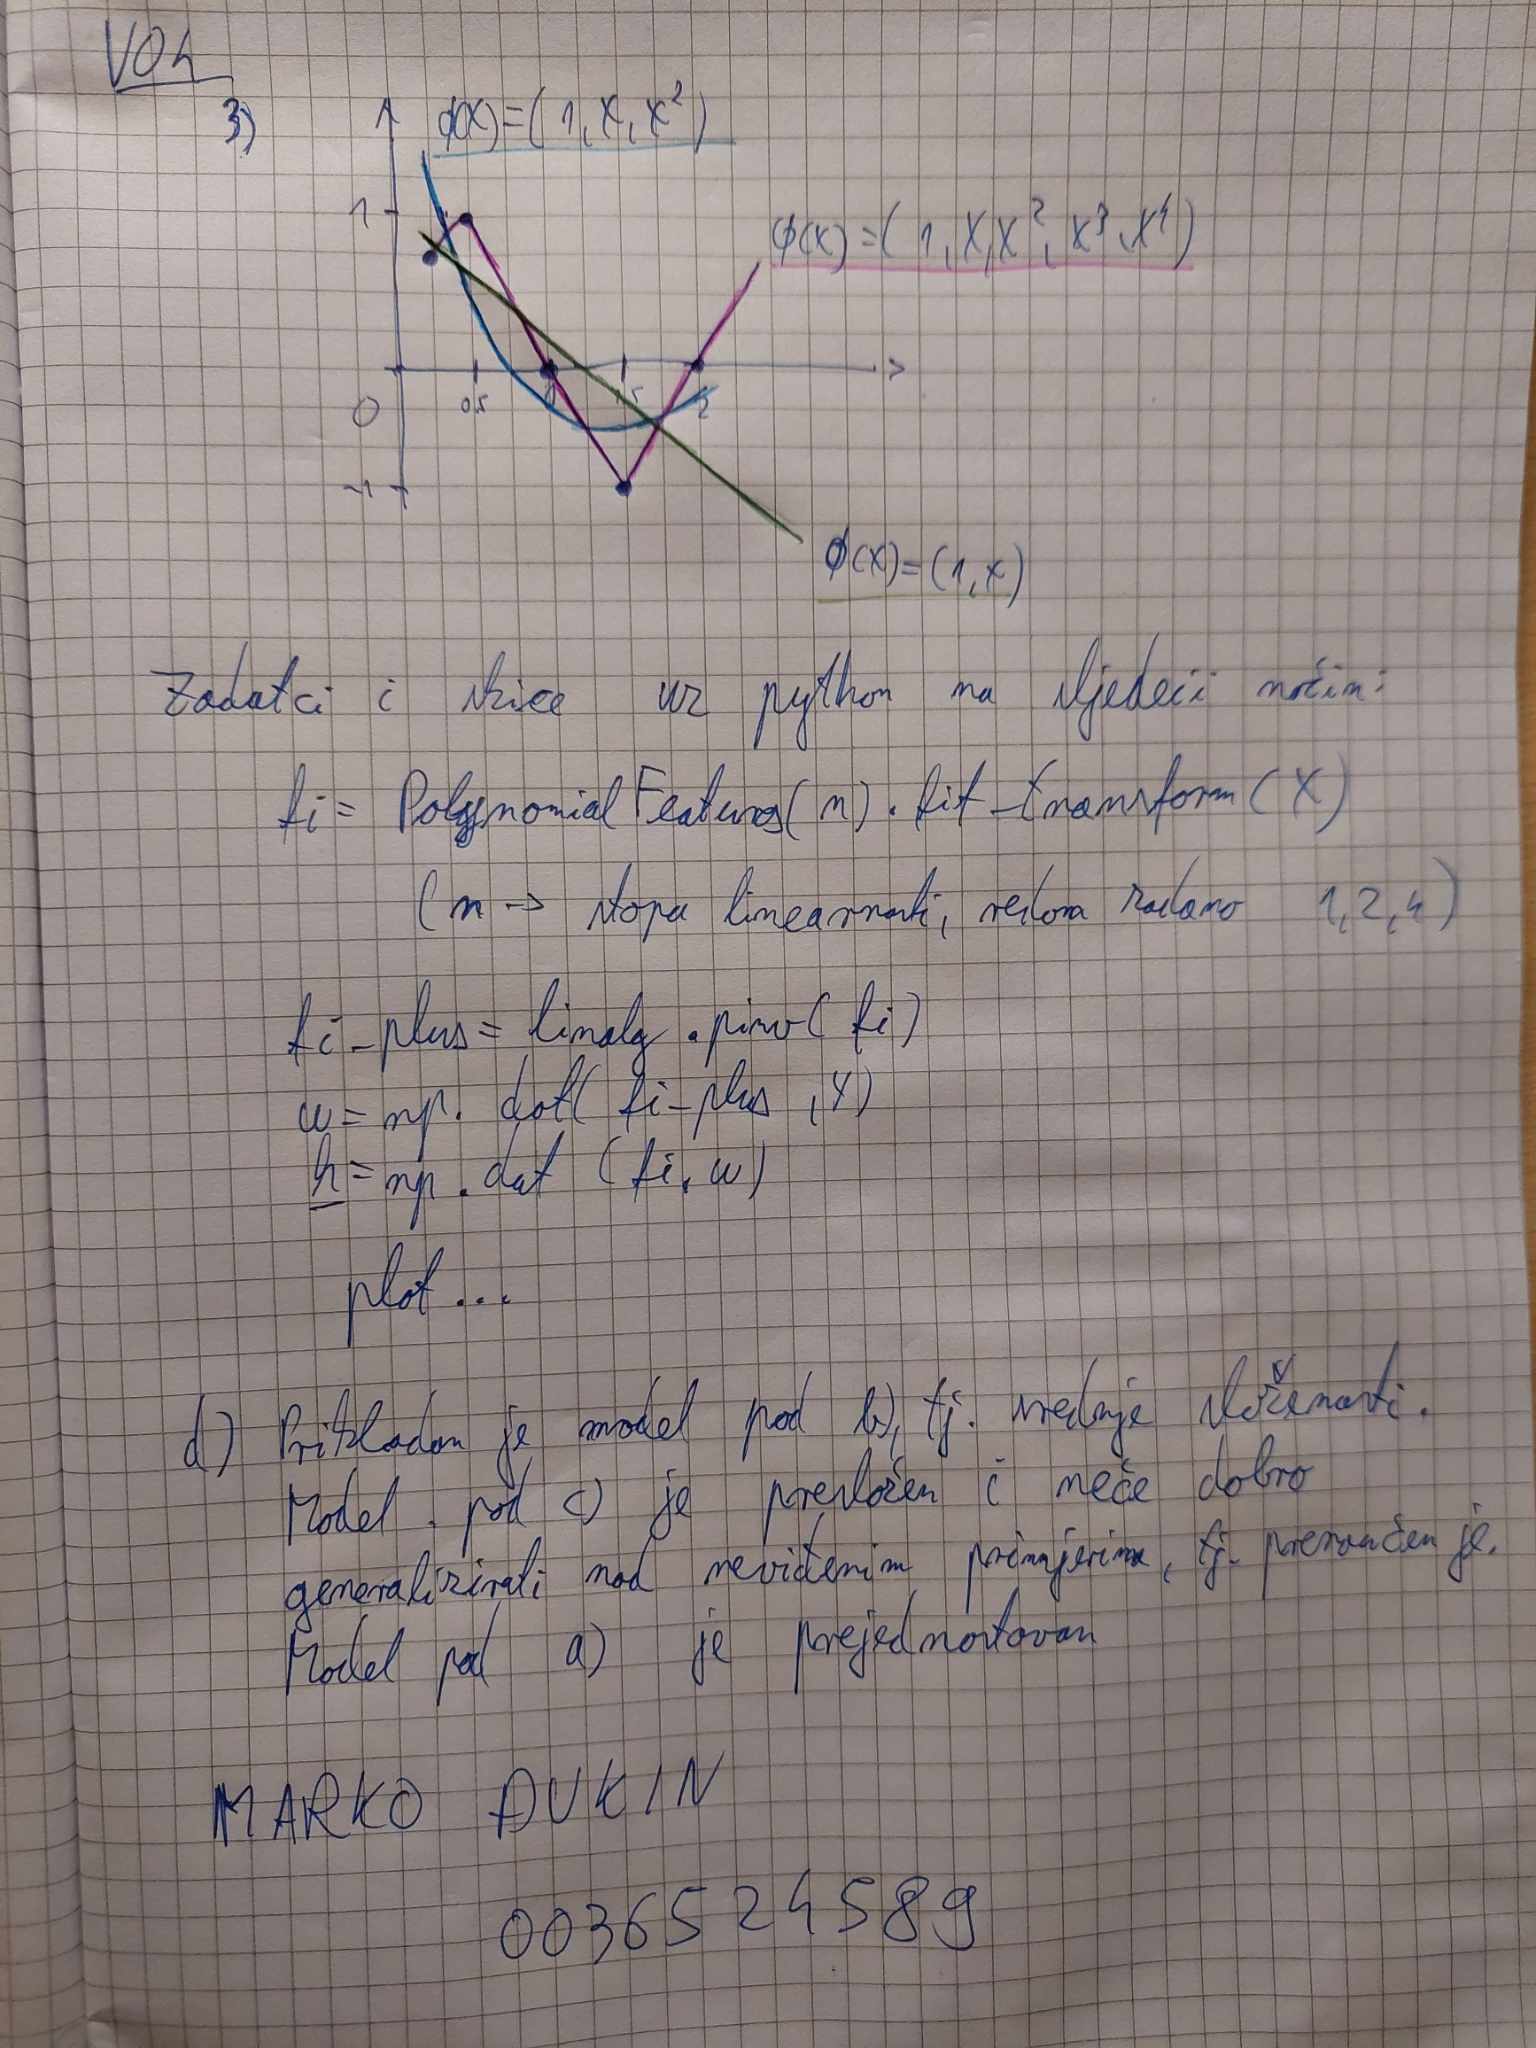 V04
3)
ϕ(X)=(1,X,X²)
1
ϕ(X)=(1,X,X²,X³,X⁴)
0
0.5
1
1.5
2
-1
ϕ(X)=(1,X)
Zadatci i skice uz python na sljedeći način:
fi = PolynomialFeatures(n).fit_transform(X)
(n → stopa linearnosti, redom zadano 1,2,4)
fi_plus = linalg.pinv(fi)
w = np.dot(fi_plus,y)
h = np.dot(fi,w)
plot...
d) Prikladan je model pod b), tj. srednje složenosti.
Model pod c) je presložen i neće dobro
generalizirati nad neviđenim primjerima, tj. prenaučen je.
Model pod a) je prejednostavan
MARKO ĐUKIN
0036524589